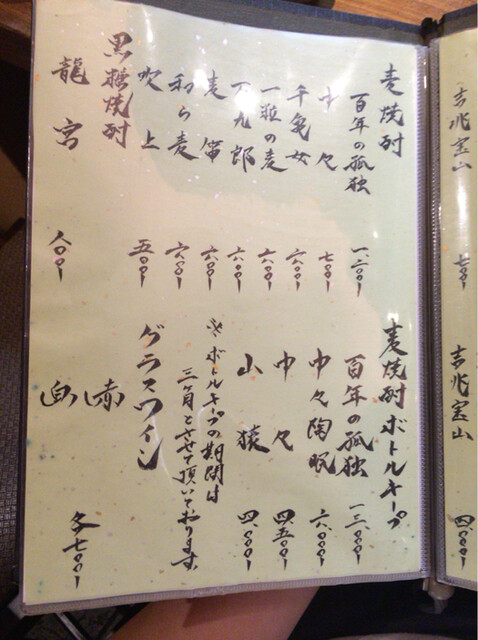 吉兆宝山 七〇〇
吉兆宝山 四、〇〇〇
麦焼酎
百年の孤独 一、二〇〇
中々 七〇〇
千亀女 六〇〇
一粒の麦 六〇〇
九郎 六〇〇
麦笛 六〇〇
和ら麦 六〇〇
吹上 五〇〇
黒糖焼酎
龍宮 八〇〇
麦焼酎ボトルキープ
百年の孤独 一三、〇〇〇
中々陶眠 六、〇〇〇
中々 四、五〇〇
山猿 四、〇〇〇
※ボトルキープの期間は
三ヶ月とさせて頂いております
グラスワイン
赤
白
各七〇〇